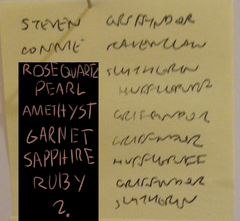 STEVEN GRIFFYNDOR
CONNIE RAVENCLAW
ROSE QUARTZ SLYTHERIN
PEARL HUFFLEPUFF
AMETHYST GRIFFINDOR
GARNET GRIFFINDOR
SAPPHIRE HUFFLEPUFF
RUBY GRIFFINDOR
?. SLYTHERIN